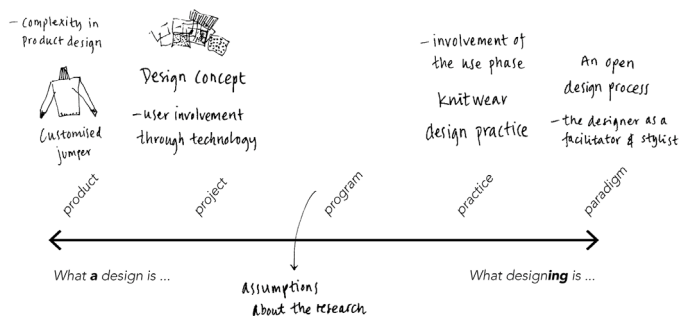 – Complexity in
Product design
Customised
jumper
Design Concept
– user involvement
through technology
– involvement of
the use phase
knitwear
design practice
An open
design process
– the designer as a
facilitator & stylist
product
project
program
practice
paradigm
What a design is ...
What designing is ...
assumptions
about the research